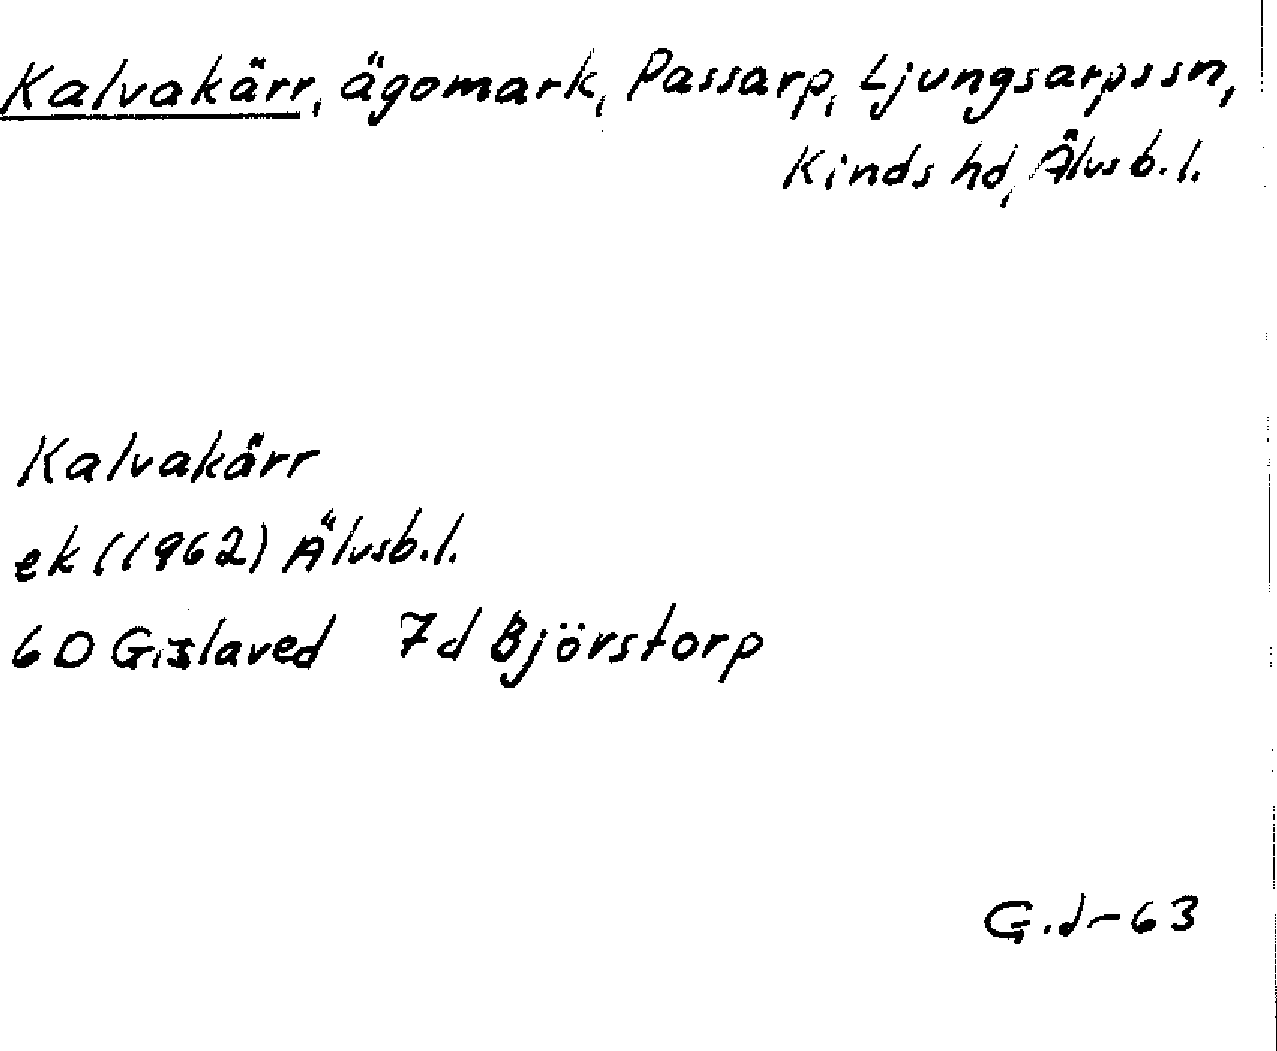 Kalvakärr, ägomark, Passarp, Ljungsarps sn,
Kinds hd, Älvsb. l.
Kalvakärr
ek (1962) Älvsb. l.
6D Gislaved 7d Björstorp
G.J-63